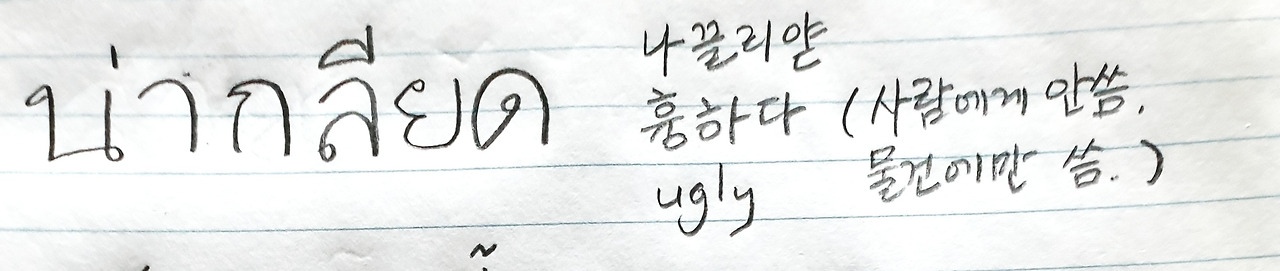 น่ากลียด
나끌리얃
흉하다 (사람에게 안씀.
물건에만 씀.)
ugly